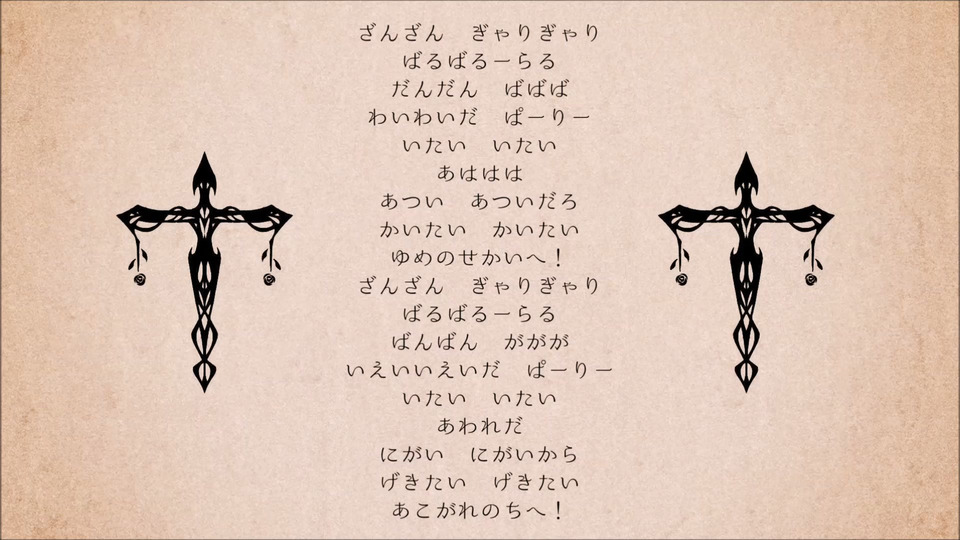 ざんざん　ぎゃりぎゃり
ばるばるーらる
だんだん　ばばば
わいわいだ　ぱーりー
いたい　いたい
あははは
あつい　あついだろ
かいたい　かいたい
ゆめのせかいへ！
ざんざん　ぎゃりぎゃり
ばるばるーらる
ばんばん　ががが
いえいいえいだ　ぱーりー
いたい　いたい
あわれだ
にがい　にがいから
げきたい　げきたい
あこがれのちへ！